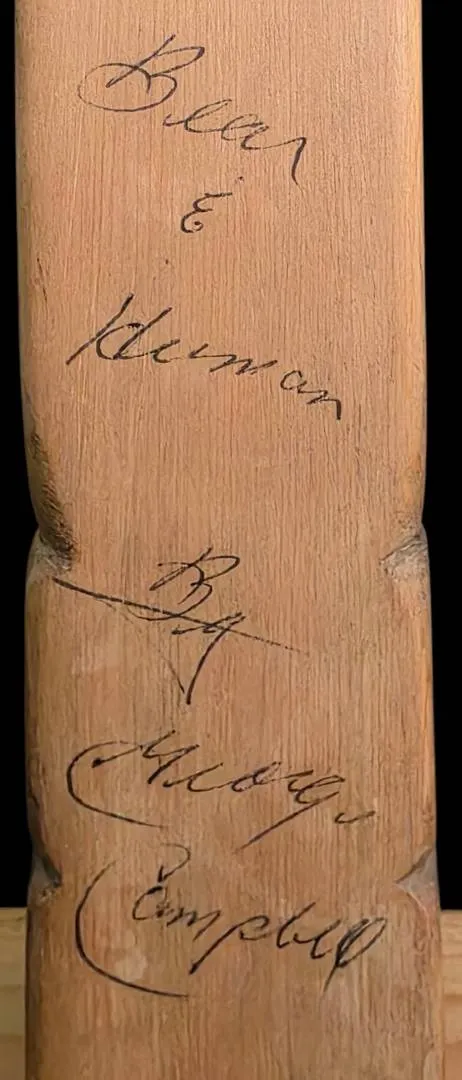 Bear
&
Human
By
George
Campbell